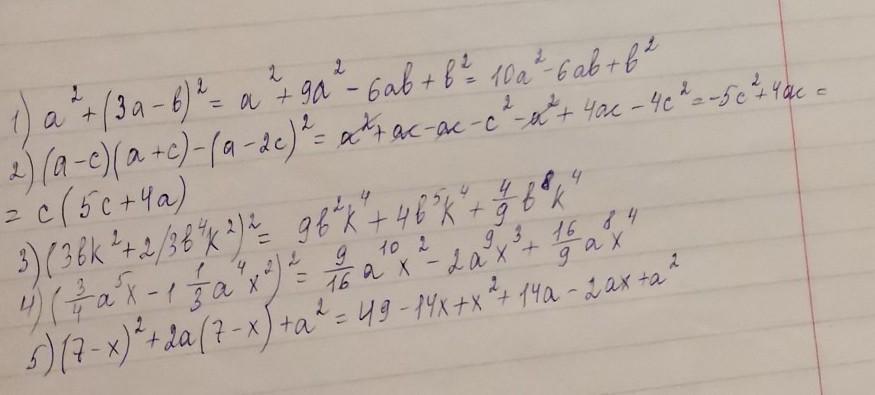 1) a² + (3a - b)² = a² + 9a² - 6ab + b² = 10a² - 6ab + b²
2) (a - c)(a + c) - (a - 2c)² = a² + ac - ac - c² - a² + 4ac - 4c² = -5c² + 4ac =
= c(5c + 4a)
3) (3bk² + 2/3b⁴k²)² = 9b²k⁴ + 4b⁵k⁴ + 4/9 b⁸k⁴
4) (3/4 a⁵x - 1 1/3 a⁴x²)² = 9/16 a¹⁰x² - 2a⁹x³ + 16/9 a⁸x⁴
5) (7 - x)² + 2a(7 - x) + a² = 49 - 14x + x² + 14a - 2ax + a²